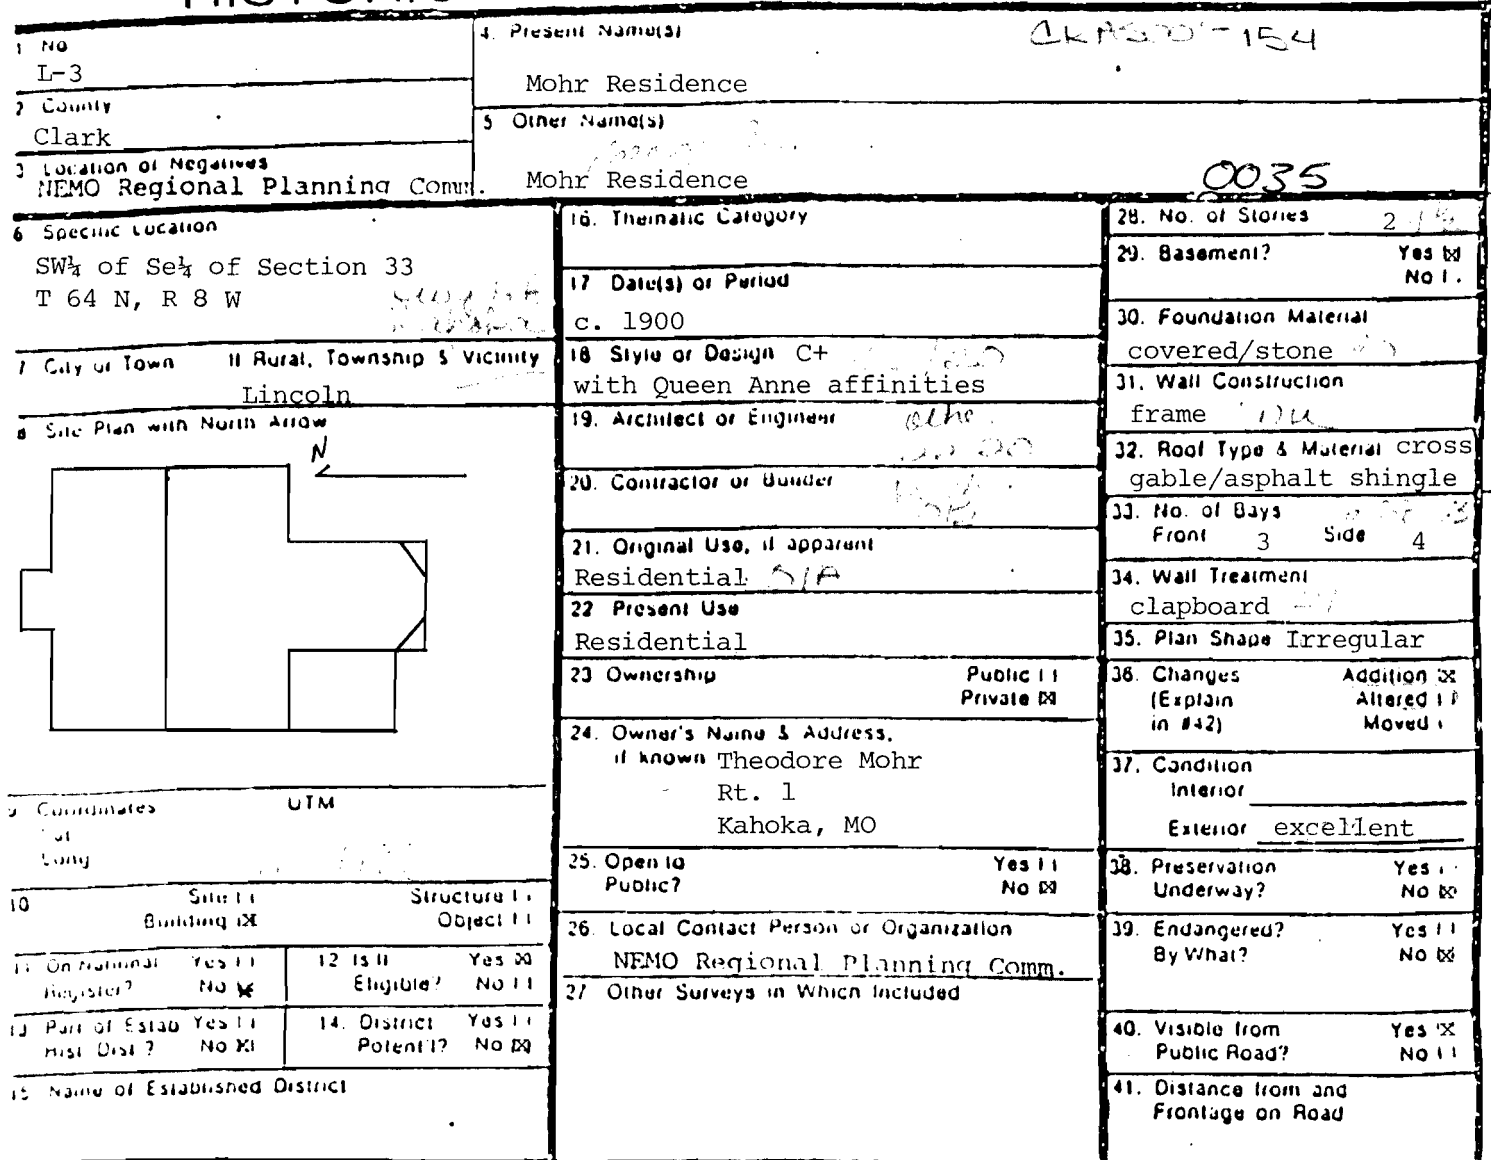 1 No
L-3
2 County
Clark
3 Location of Negatives
NEMO Regional Planning Comm.
4. Present Name(s)
Mohr Residence
154
5 Other Name(s)
Mohr Residence
0035
6 Specific Location
SW¼ of Se¼ of Section 33
T 64 N, R 8 W
7 City or Town If Rural, Township & Vicinity
Lincoln
8 Site Plan with North Arrow
N
9 Coordinates UTM
Lat
Long
10 Site [ ] Structure [ ]
Building [X] Object [ ]
11 On National Yes [ ]
Register? No [X]
12 Is It Yes [X]
Eligible? No [ ]
13 Part of Estab Yes [ ]
Hist Dist? No [X]
14. District Yes [ ]
Potent'l? No [X]
15 Name of Established District
16. Thematic Category
17 Date(s) or Period
c. 1900
18 Style or Design C+
with Queen Anne affinities
19. Architect or Engineer
20. Contractor or Builder
21. Original Use, if apparent
Residential 01A
22 Present Use
Residential
23 Ownership Public [ ]
Private [X]
24. Owner's Name & Address,
if known Theodore Mohr
Rt. 1
Kahoka, MO
25. Open to Yes [ ]
Public? No [X]
26. Local Contact Person or Organization
NEMO Regional Planning Comm.
27 Other Surveys in Which Included
28. No. of Stories 2
29. Basement? Yes [X]
No [ ]
30. Foundation Material
covered/stone
31. Wall Construction
frame
32. Roof Type & Material cross
gable/asphalt shingle
33. No. of Bays
Front 3 Side 4
34. Wall Treatment
clapboard
35. Plan Shape Irregular
36. Changes Addition [X]
(Explain Altered [ ]
in #42) Moved [ ]
37. Condition
Interior
Exterior excellent
38. Preservation Yes [ ]
Underway? No [X]
39. Endangered? Yes [ ]
By What? No [X]
40. Visible from Yes [X]
Public Road? No [ ]
41. Distance from and
Frontage on Road